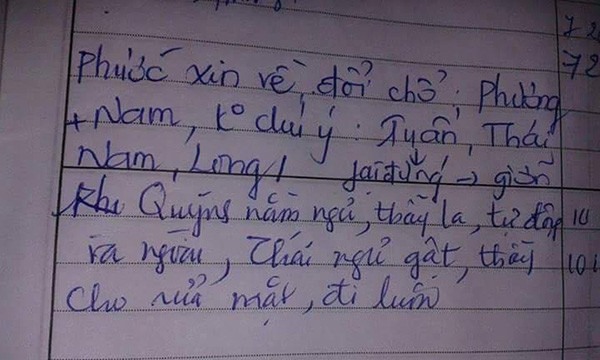 72
Phước xin về, đổi chỗ: Phương 72
+ Nam, ko chú ý: Tuấn, Thái
Nam, Long, → giỡn
Khi Quỳnh nằm ngủ, thầy la, tự động 10
ra ngoài, Thái ngủ gật, thầy 10
cho rửa mặt, đi luôn